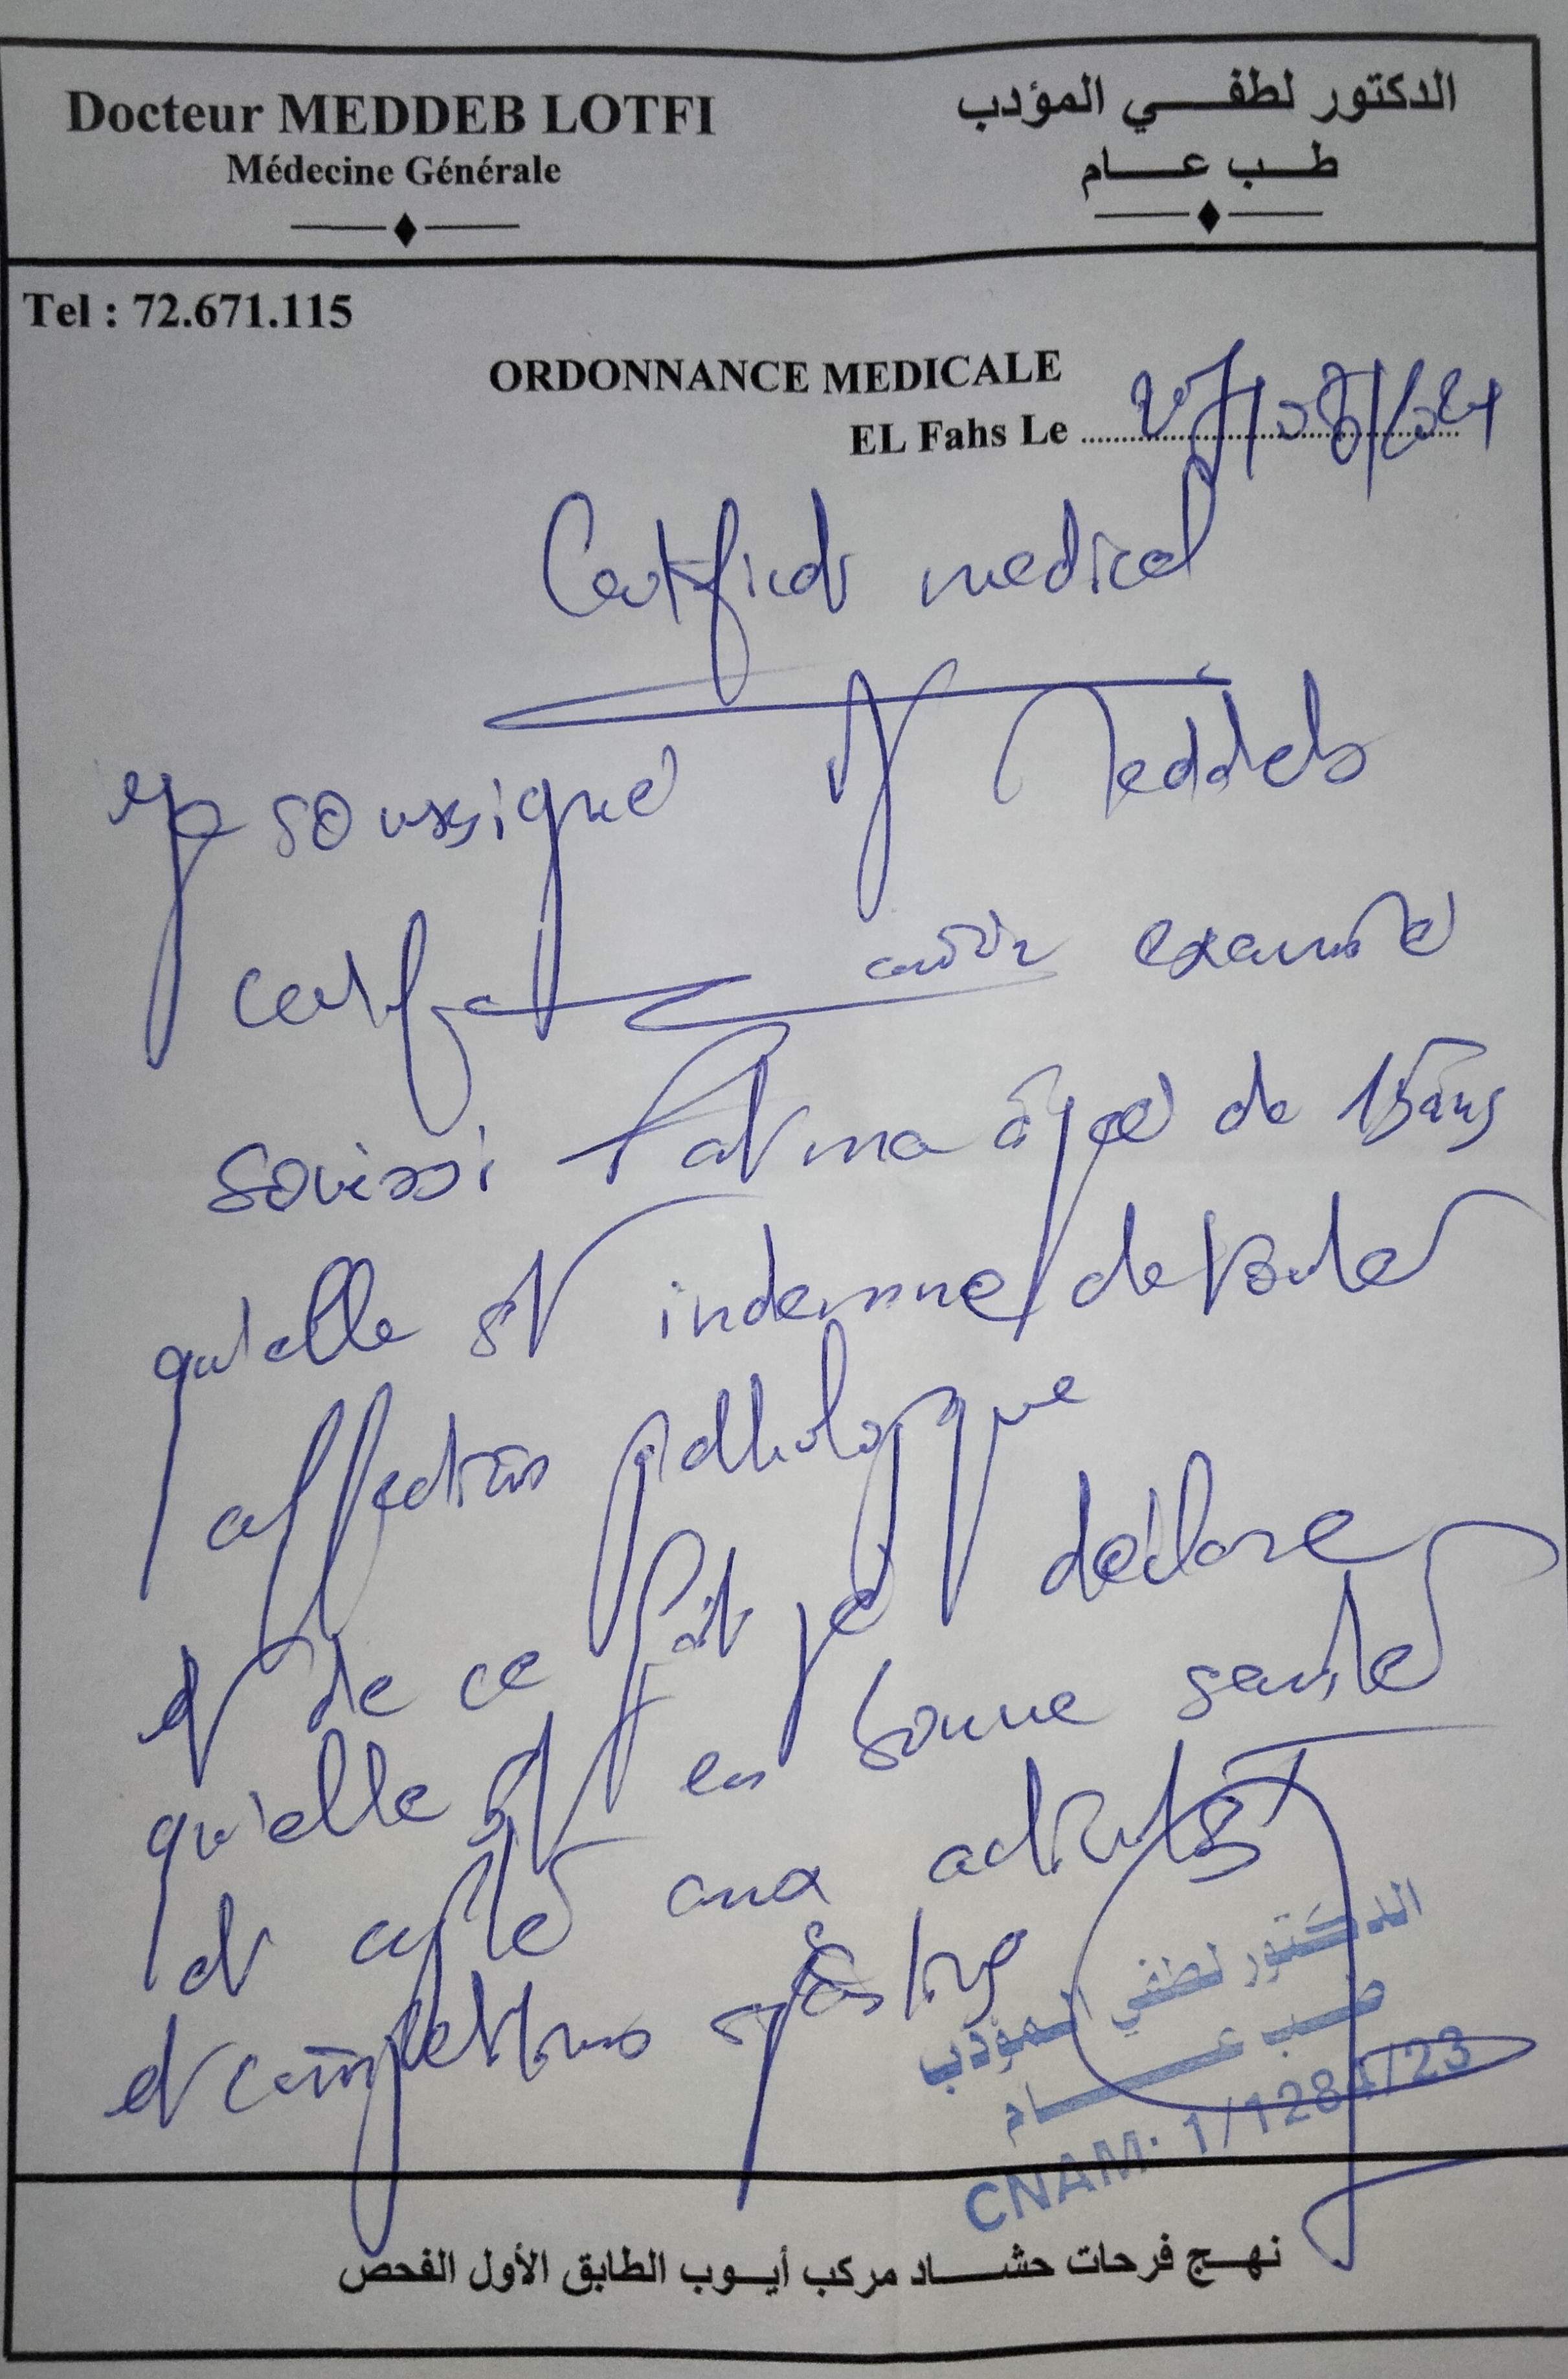 Docteur MEDDEB LOTFI
Médecine Générale
الدكتور لطفي المؤدب
طب عام
Tel : 72.671.115
ORDONNANCE MEDICALE
EL Fahs Le
Certificat medical
Je soussigné Dr Meddeb
certifie avoir examiné
Souissi Fatma âgée de 15 ans
qu'elle est indemne de toute
affection pathologique
et de ce fait je déclare
qu'elle est en bonne santé
et apte aux activités
et compétitions sportives
الدكتور لطفي المؤدب
طب عام
CNAM: 1/1284/23
نهج فرحات حشاد مركب أيوب الطابق الأول الفحص